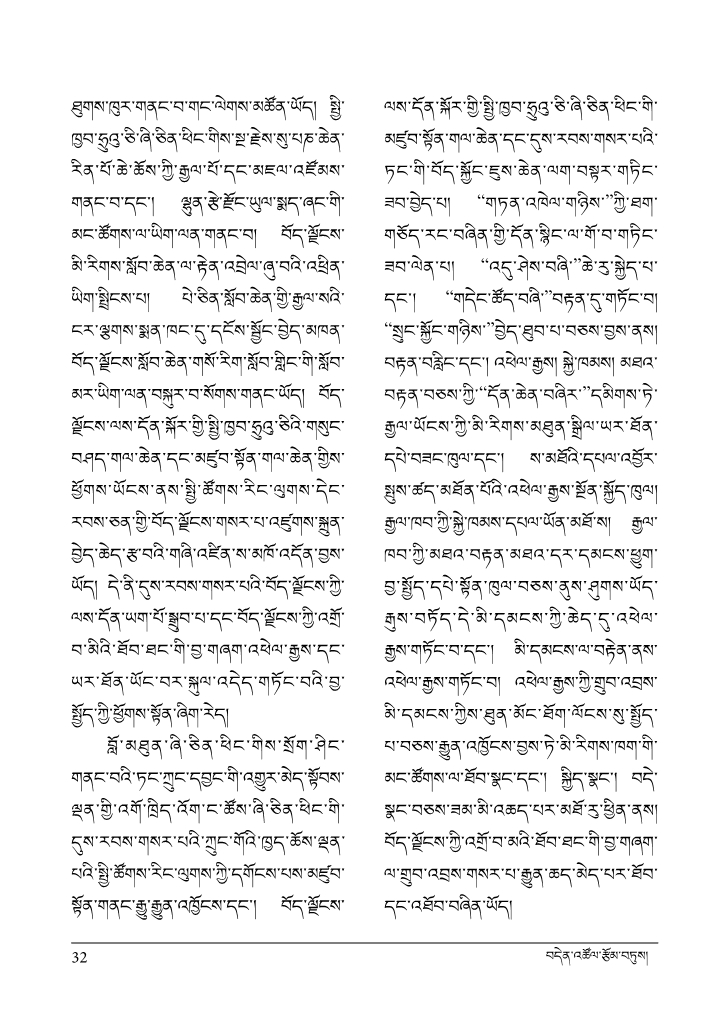 ཐུགས་ཁུར་གནང་བ་གང་ལེགས་མཚོན་ཡོད། སྤྱི་
ཁྱབ་ཧྲུའུ་ཅི་ཞི་ཅིན་ཕིང་གིས་སྔ་རྗེས་སུ་པཎ་ཆེན་
རིན་པོ་ཆེ་ཆོས་ཀྱི་རྒྱལ་པོ་དང་མཇལ་འཛོམས་
གནང་བ་དང་། ལྷུན་རྩེ་རྫོང་ཡུལ་སྨད་ཞང་གི་
མང་ཚོགས་ལ་ཡིག་ལན་གནང་བ། བོད་ལྗོངས་
མི་རིགས་སློབ་ཆེན་ལ་རྟེན་འབྲེལ་ཞུ་བའི་འཕྲིན་
ཡིག་སྤྲིངས་པ། པེ་ཅིན་སློབ་ཆེན་གྱི་རྒྱལ་སའི་
ངར་ལྕགས་སྨན་ཁང་དུ་དངོས་སྦྱོང་བྱེད་མཁན་
བོད་ལྗོངས་སློབ་ཆེན་གསོ་རིག་སློབ་གླིང་གི་སློབ་
མར་ཡིག་ལན་བསྐུར་བ་སོགས་གནང་ཡོད། བོད་
ལྗོངས་ལས་དོན་སྐོར་གྱི་སྤྱི་ཁྱབ་ཧྲུའུ་ཅིའི་གསུང་
བཤད་གལ་ཆེན་དང་མཛུབ་སྟོན་གལ་ཆེན་གྱིས་
ཕྱོགས་ཡོངས་ནས་སྤྱི་ཚོགས་རིང་ལུགས་དེང་
རབས་ཅན་གྱི་བོད་ལྗོངས་གསར་པ་འཛུགས་སྐྲུན་
བྱེད་ཆེད་རྩ་བའི་གཞི་འཛིན་ས་མཁོ་འདོན་བྱས་
ཡོད། དེ་ནི་དུས་རབས་གསར་པའི་བོད་ལྗོངས་ཀྱི་
ལས་དོན་ཡག་པོ་སྒྲུབ་པ་དང་བོད་ལྗོངས་ཀྱི་འགྲོ་
བ་མིའི་ཐོབ་ཐང་གི་བྱ་གཞག་འཕེལ་རྒྱས་དང་
ཡར་ཐོན་ཡོང་བར་སྐུལ་འདེད་གཏོང་བའི་བྱ་
སྤྱོད་ཀྱི་ཕྱོགས་སྟོན་ཞིག་རེད།
བློ་མཐུན་ཞི་ཅིན་ཕིང་གིས་སྲོག་ཤིང་
གནང་བའི་ཏང་ཀྲུང་དབྱང་གི་འགྱུར་མེད་སྟོབས་
ལྡན་གྱི་འགོ་ཁྲིད་འོག་ང་ཚོས་ཞི་ཅིན་ཕིང་གི་
དུས་རབས་གསར་པའི་ཀྲུང་གོའི་ཁྱད་ཆོས་ལྡན་
པའི་སྤྱི་ཚོགས་རིང་ལུགས་ཀྱི་དགོངས་པས་མཛུབ་
སྟོན་གནང་རྒྱུ་རྒྱུན་འཁྱོངས་དང་། བོད་ལྗོངས་
ལས་དོན་སྐོར་གྱི་སྤྱི་ཁྱབ་ཧྲུའུ་ཅི་ཞི་ཅིན་ཕིང་གི་
མཛུབ་སྟོན་གལ་ཆེན་དང་དུས་རབས་གསར་པའི་
ཏང་གི་བོད་སྐྱོང་ཇུས་ཆེན་ལག་བསྟར་གཏིང་
ཟབ་བྱེད་པ། “གཏན་འཁེལ་གཉིས་”ཀྱི་ཐག་
གཅོད་རང་བཞིན་གྱི་དོན་སྙིང་ལ་གོ་བ་གཏིང་
ཟབ་ལེན་པ། “འདུ་ཤེས་བཞི་”ཆེ་རུ་སྐྱེད་པ་
དང་། “གདེང་ཚོད་བཞི་”བརྟན་དུ་གཏོང་བ།
“སྲུང་སྐྱོང་གཉིས་”བྱེད་ཐུབ་པ་བཅས་བྱས་ནས།
བརྟན་བརླིང་དང་། འཕེལ་རྒྱས། སྐྱེ་ཁམས། མཐའ་
བརྟན་བཅས་ཀྱི་“དོན་ཆེན་བཞིར་”དམིགས་ཏེ་
རྒྱལ་ཡོངས་ཀྱི་མི་རིགས་མཐུན་སྒྲིལ་ཡར་ཐོན་
དཔེ་བཟང་ཁུལ་དང་། ས་མཐོའི་དཔལ་འབྱོར་
སྤུས་ཚད་མཐོན་པོའི་འཕེལ་རྒྱས་སྔོན་སྐྱོད་ཁུལ།
རྒྱལ་ཁབ་ཀྱི་སྐྱེ་ཁམས་དཔལ་ཡོན་མཐོ་ས། རྒྱལ་
ཁབ་ཀྱི་མཐའ་བརྟན་མཐའ་དར་དམངས་ཕྱུག་
བྱ་སྤྱོད་དཔེ་སྟོན་ཁུལ་བཅས་ནུས་ཤུགས་ཡོད་
རྒུས་བཏོད་དེ་མི་དམངས་ཀྱི་ཆེད་དུ་འཕེལ་
རྒྱས་གཏོང་བ་དང་། མི་དམངས་ལ་བརྟེན་ནས་
འཕེལ་རྒྱས་གཏོང་བ། འཕེལ་རྒྱས་ཀྱི་གྲུབ་འབྲས་
མི་དམངས་ཀྱིས་ཐུན་མོང་ཐོག་ལོངས་སུ་སྤྱོད་
པ་བཅས་རྒྱུན་འཁྱོངས་བྱས་ཏེ་མི་རིགས་ཁག་གི་
མང་ཚོགས་ལ་ཐོབ་སྣང་དང་། སྐྱིད་སྣང་། བདེ་
སྣང་བཅས་ཟམ་མི་འཆད་པར་མཐོ་རུ་ཕྱིན་ནས།
བོད་ལྗོངས་ཀྱི་འགྲོ་བ་མའི་ཐོབ་ཐང་གི་བྱ་གཞག་
ལ་གྲུབ་འབྲས་གསར་པ་རྒྱུན་ཆད་མེད་པར་ཐོབ་
དང་འཐོབ་བཞིན་ཡོད།
32
བདེན་འཚོལ་རྩོམ་བཏུས།